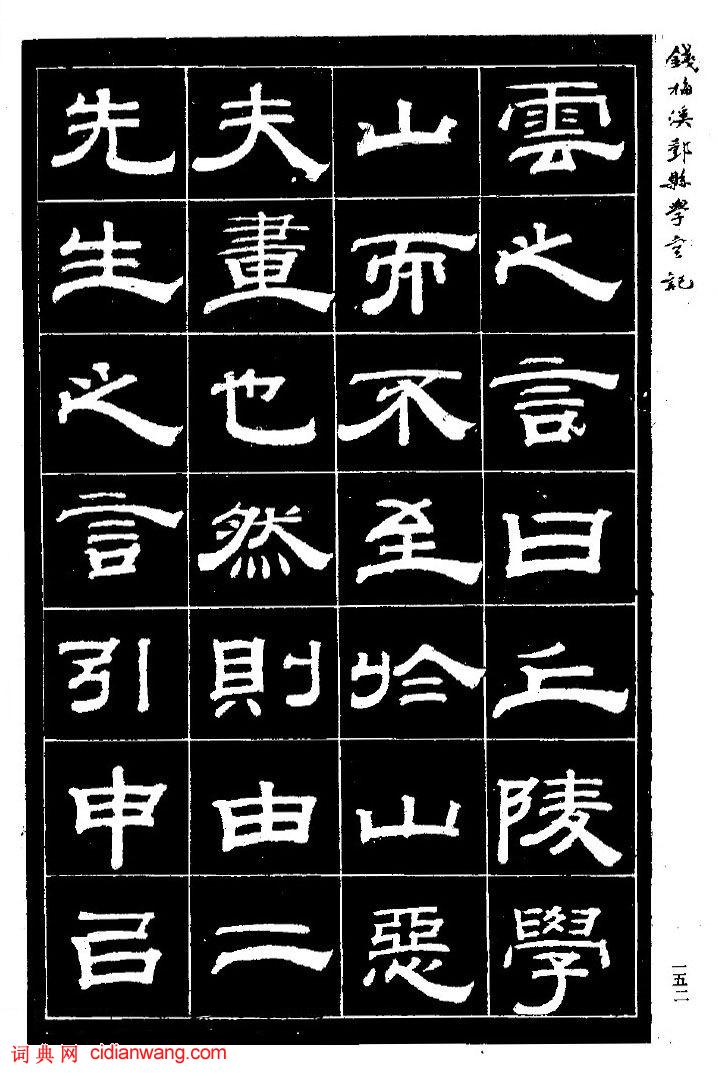 錢梅溪鄞縣學宮記
雲之言曰丘陵學
山而不至於山惡
夫畫也然則由二
先生之言引申㠯
一五二
词典网 cidianwang.com